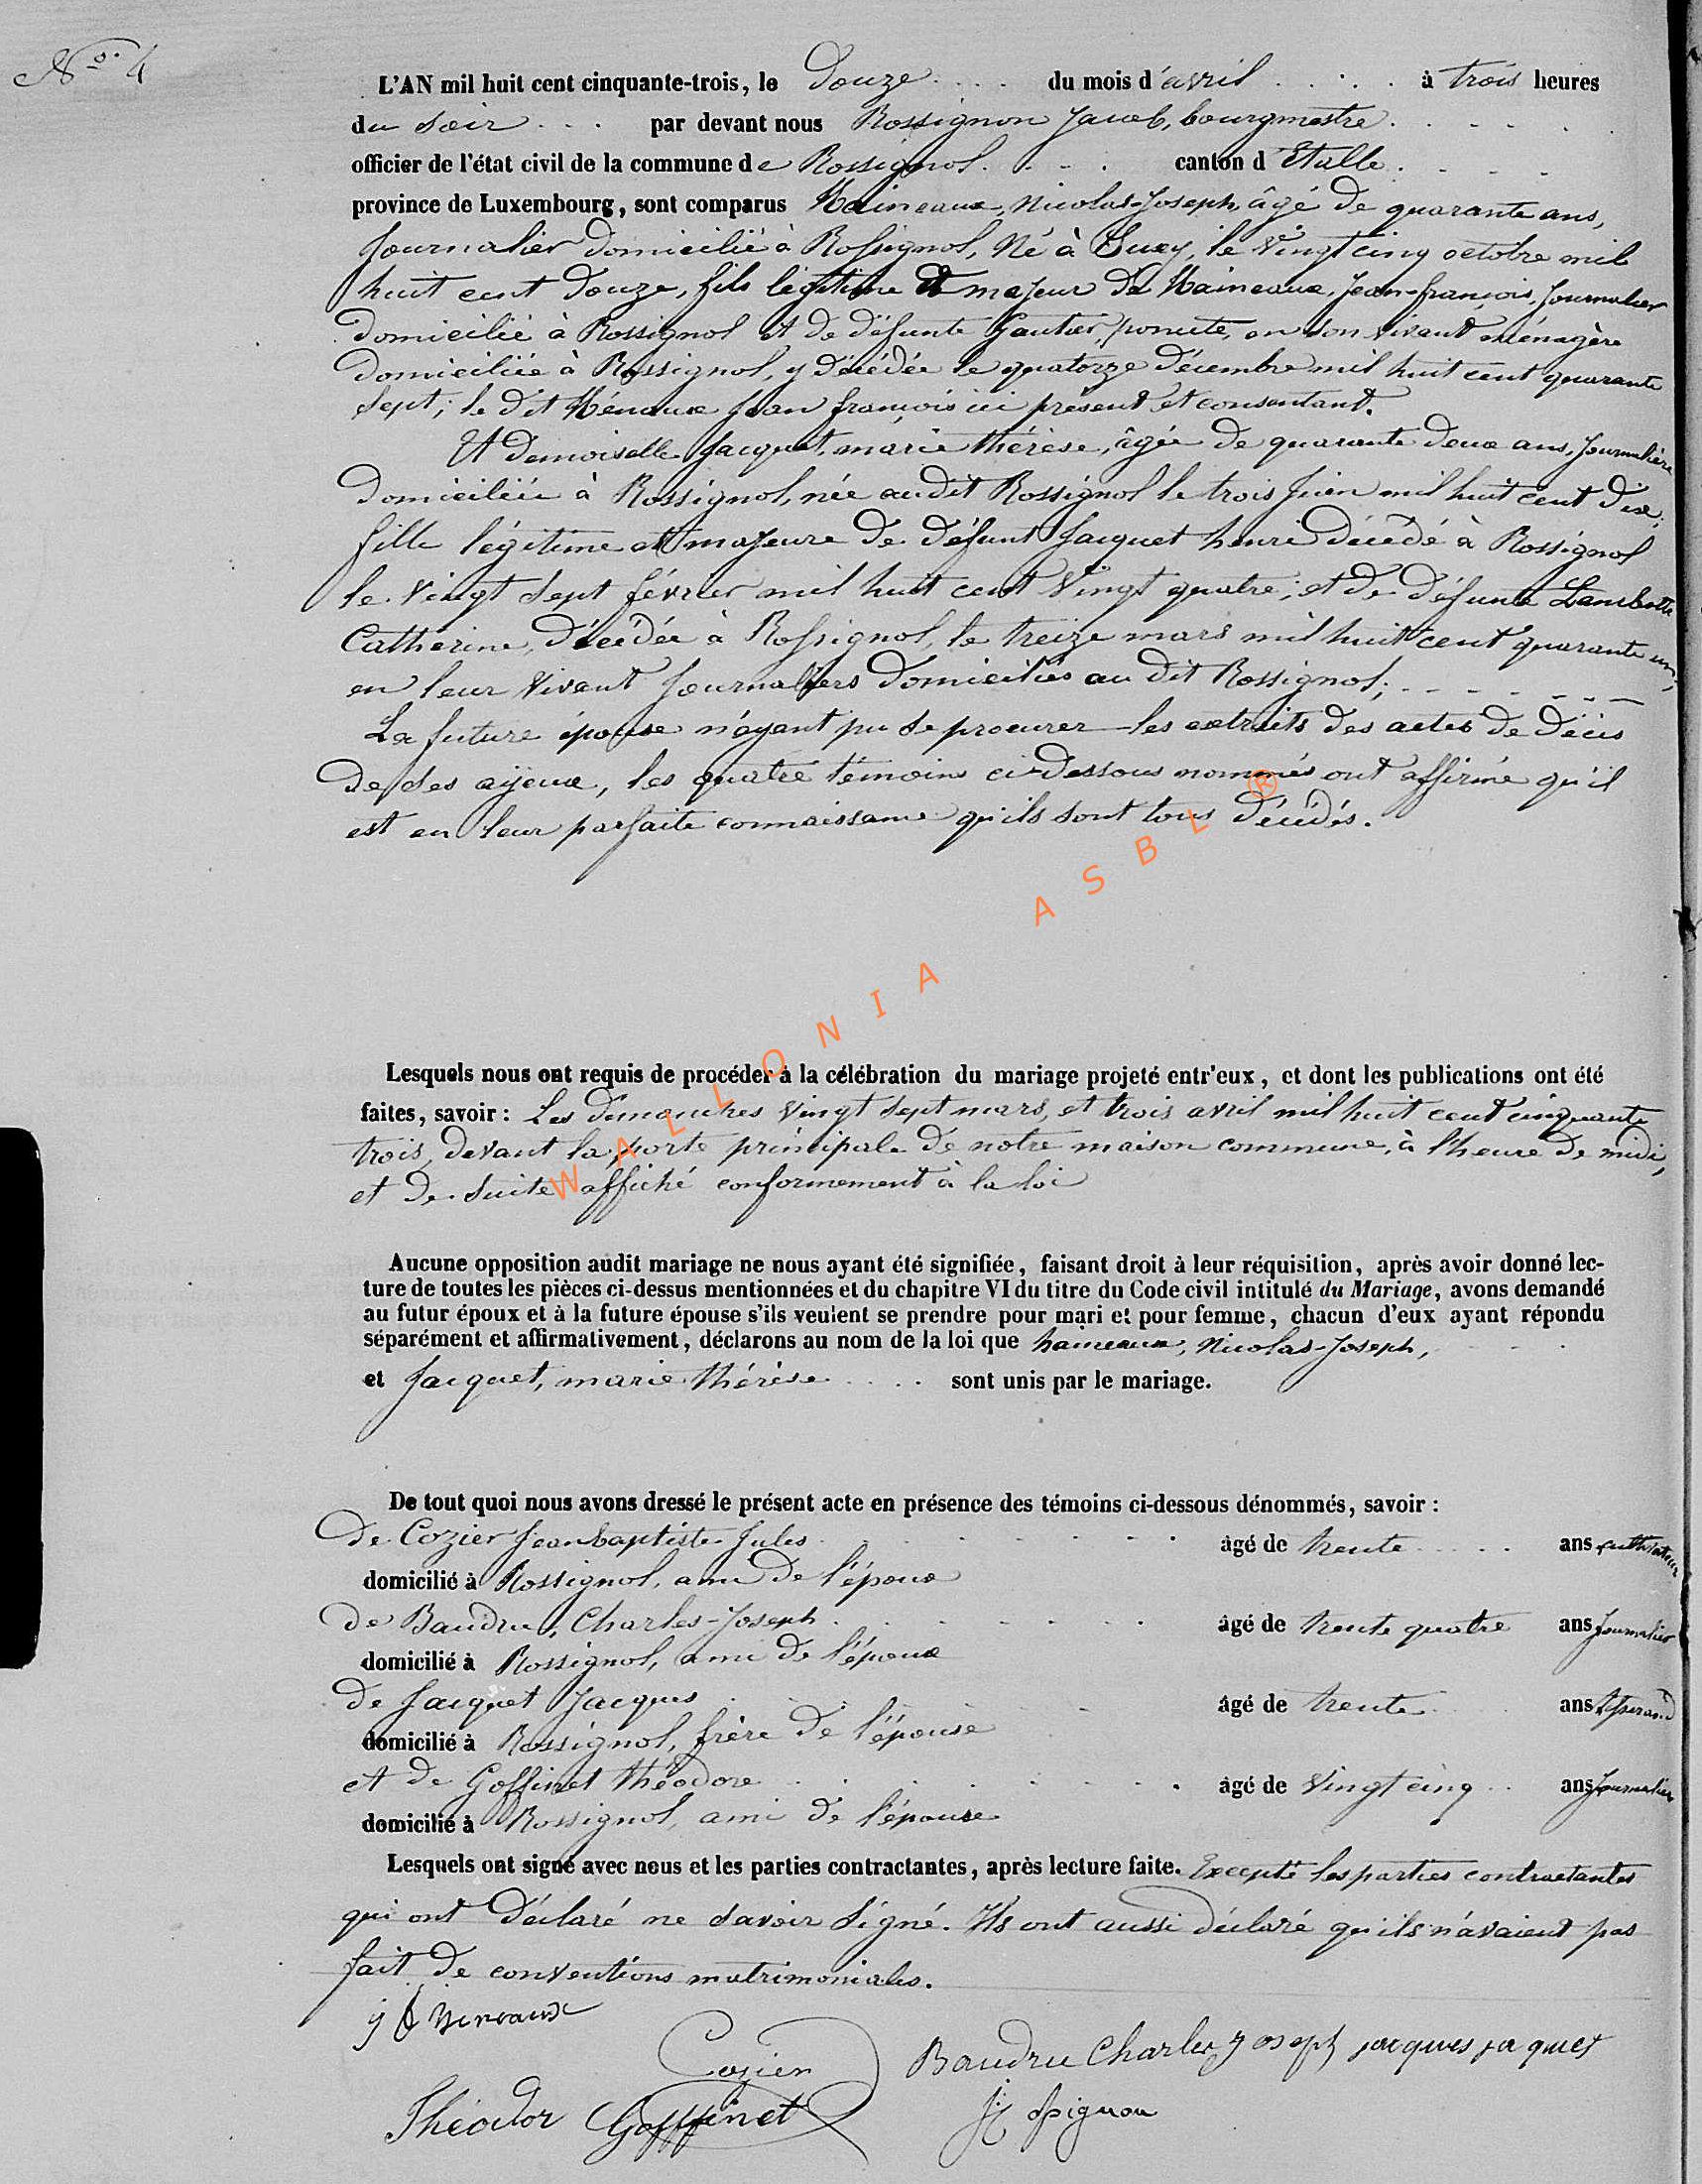 N° 4
L'AN mil huit cent cinquante-trois, le Douze du mois d'avril à trois heures
du soir par devant nous Rossignon Jacob, bourgmestre
officier de l'état civil de la commune de Rossignol canton d'Etalle
province de Luxembourg, sont comparus Haineaux, Nicolas-Joseph, âgé de quarante ans,
Journalier domicilié à Rossignol, Né à Suxy, le Vingt cinq octobre mil
huit cent Douze, fils légitime et majeur de Haineaux, Jean-françois, Journalier
domicilié à Rossignol et de défunte Gautier, en son vivant ménagère
domiciliée à Rossignol, y décédée le quatorze Décembre mil huit cent quarante
Sept; le dit Hénaux Jean françois ici présent et consentant.
Et Demoiselle Jacquet, marie thérèse, âgée de quarante deux ans, Journalière
domiciliée à Rossignol, née audit Rossignol le trois Juin mil huit cent dix;
fille légitime et majeure de défunt Jacquet henri décédé à Rossignol
le Vingt Sept février mil huit cent Vingt quatre; et de défunte Lambotte
Catherine, décédée à Rossignol, le treize mars mil huit cent quarante un;
en leur Vivant Journaliers domiciliés au dit Rossignol;
La future épouse n'ayant pu se procurer les extraits des actes de décès
de ses aïeux, les quatre témoins ci-dessous nommés ont affirmé qu'il
est en leur parfaite connaissance qu'ils sont tous décédés.
WALLONIA ASBL ®
Lesquels nous ont requis de procéder à la célébration du mariage projeté entr'eux, et dont les publications ont été
faites, savoir: Les dimanches Vingt Sept mars, et trois avril mil huit cent cinquante
trois, devant la porte principale de notre maison commune, à l'heure de midi,
et de suite affiché conformement à la loi
Aucune opposition audit mariage ne nous ayant été signifiée, faisant droit à leur réquisition, après avoir donné lec-
ture de toutes les pièces ci-dessus mentionnées et du chapitre VI du titre du Code civil intitulé du Mariage, avons demandé
au futur époux et à la future épouse s'ils veulent se prendre pour mari et pour femme, chacun d'eux ayant répondu
séparément et affirmativement, déclarons au nom de la loi que haineaux, Nicolas-Joseph,
et Jacquet, marie thérèse sont unis par le mariage.
De tout quoi nous avons dressé le présent acte en présence des témoins ci-dessous dénommés, savoir:
De Cozier Jean baptiste Jules âgé de trente ans cultivateur
domicilié à Rossignol, ami de l'époux
de Baudru, Charles-Joseph âgé de trente quatre ans Journalier
domicilié à Rossignol, ami de l'époux
de Jacquet Jacques âgé de trente ans
domicilié à Rossignol, frère de l'épouse
et de Goffinet théodore âgé de Vingt cinq ans Journalier
domicilié à Rossignol, ami de l'épouse
Lesquels ont signé avec nous et les parties contractantes, après lecture faite. Excepté les parties contractantes
qui ont déclaré ne savoir signé. Ils ont aussi déclaré qu'ils n'avaient pas
fait de conventions matrimoniales.
Cozier Baudru Charles Joseph jacques jaquet
Théodor Goffinet